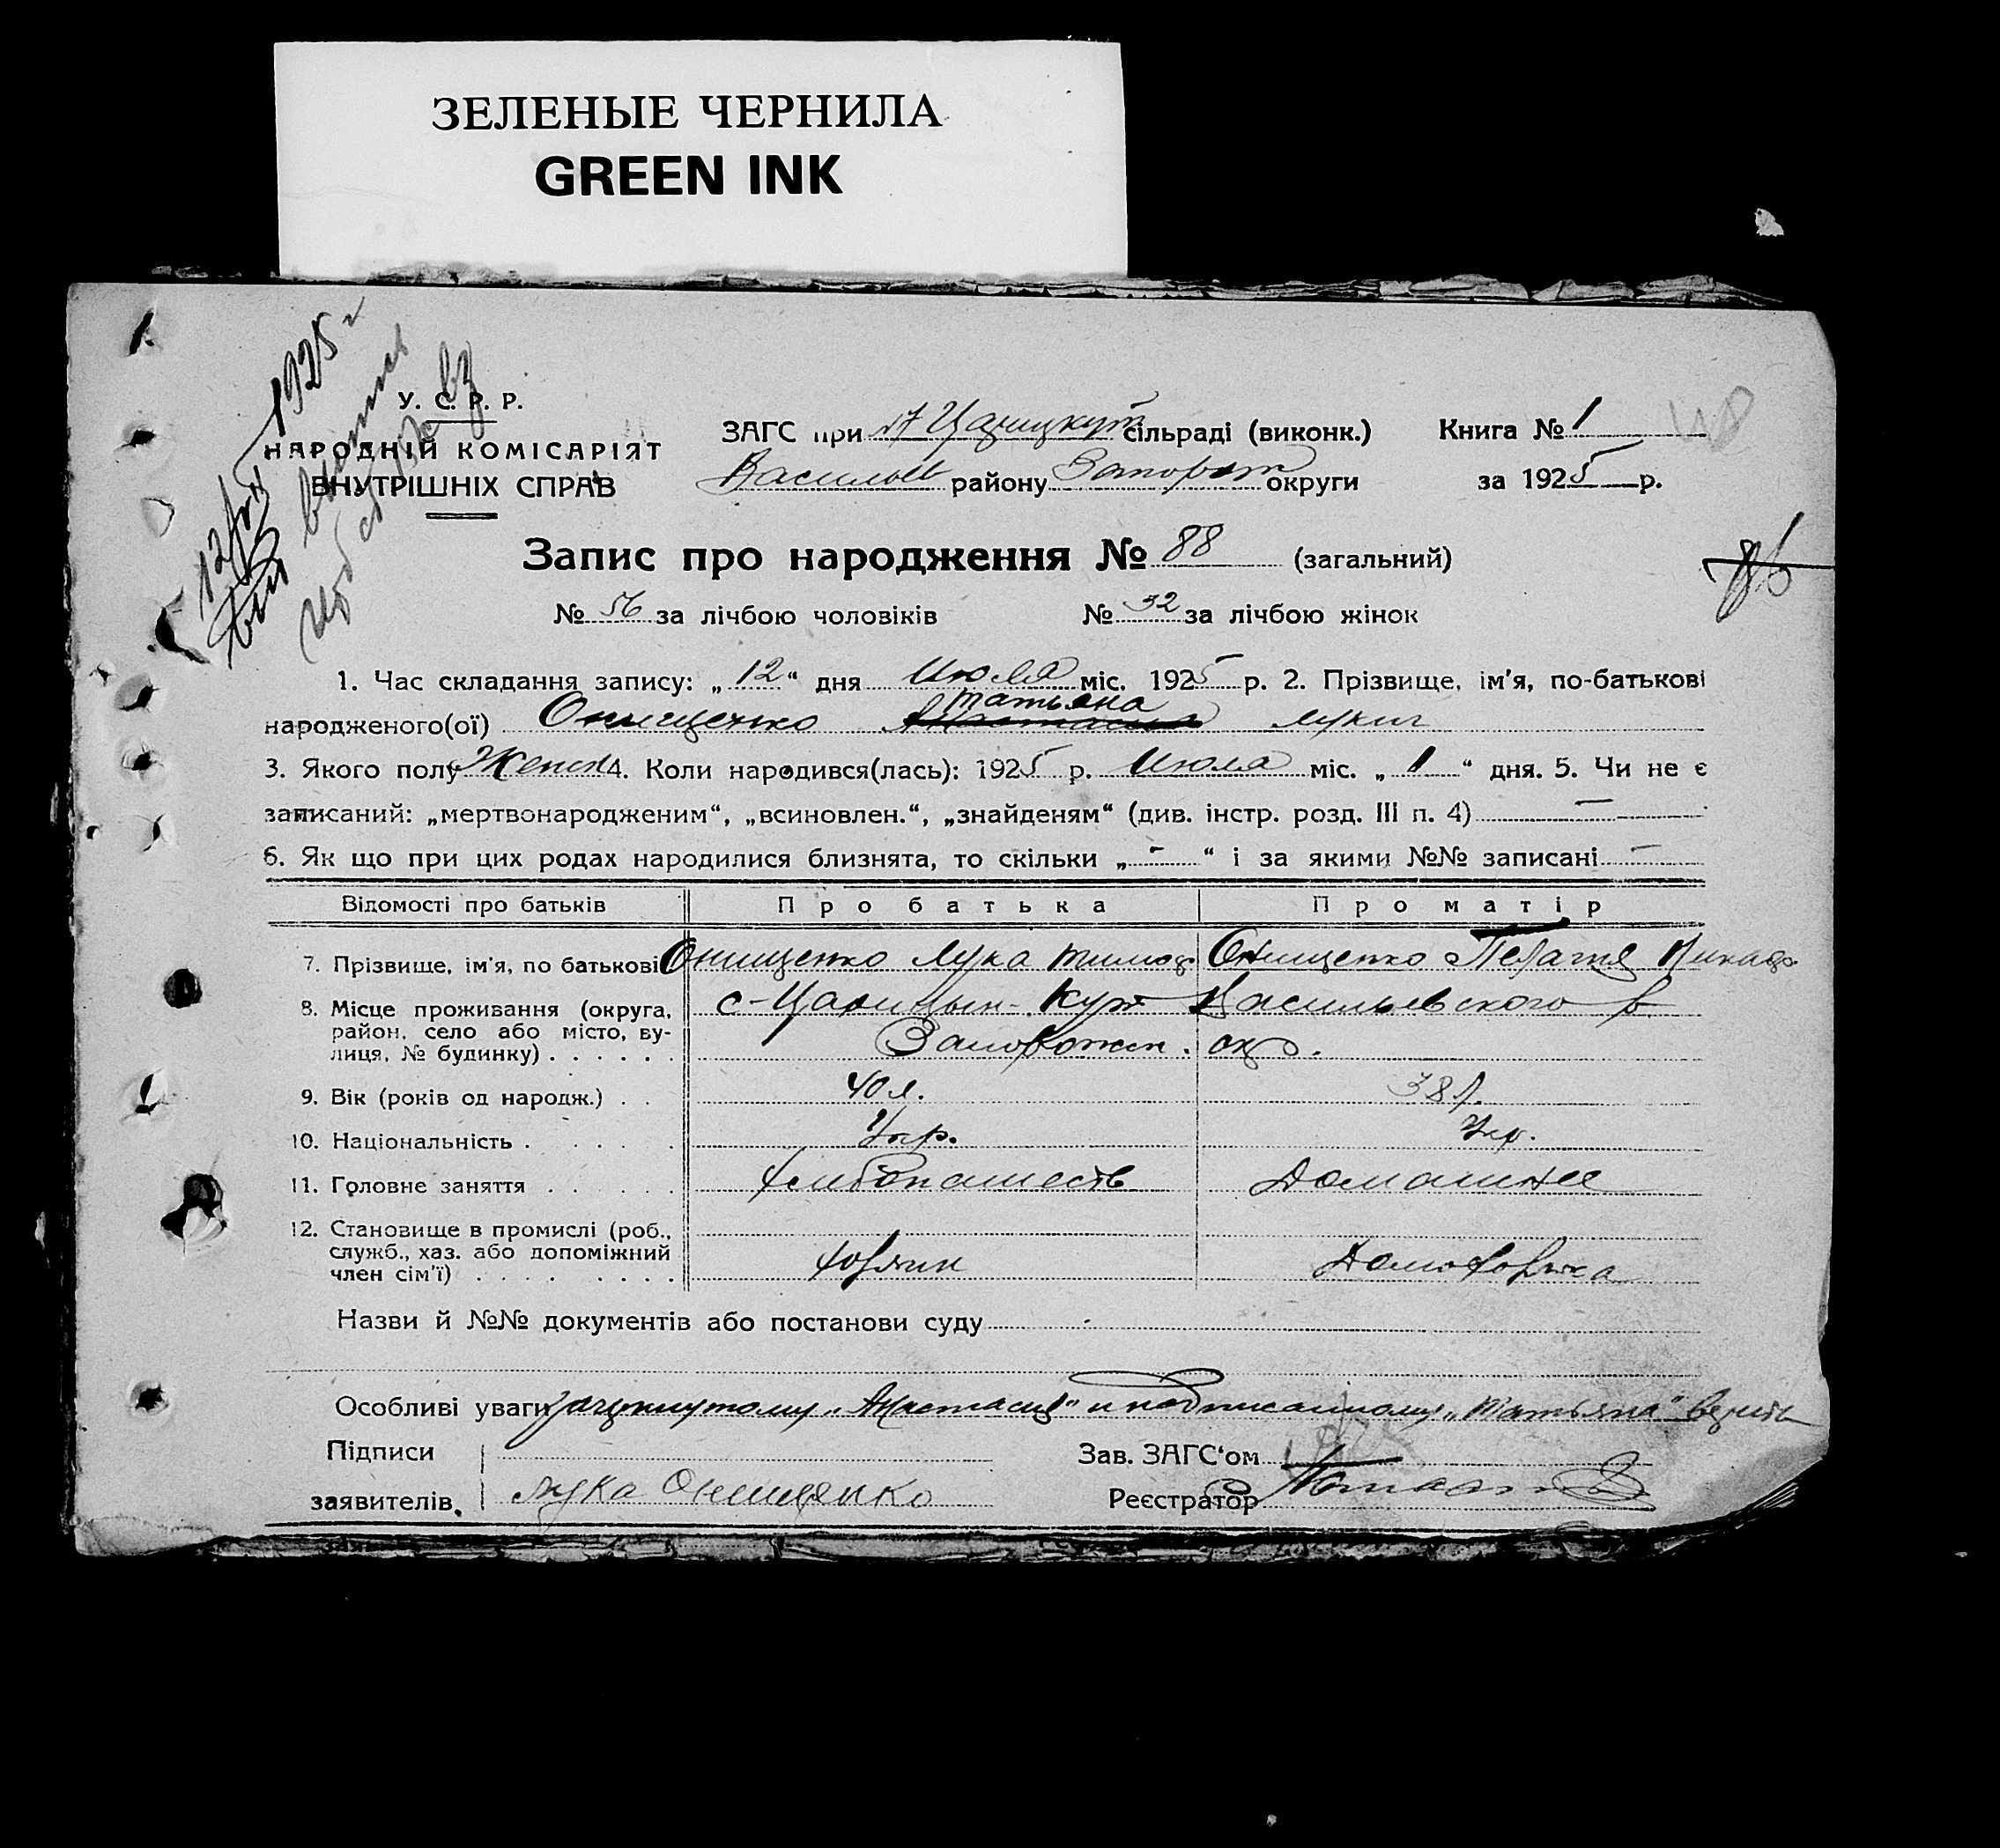 ЗЕЛЕНЫЕ ЧЕРНИЛА
GREEN INK
1925 г
У. С. Р. Р.
НАРОДНІЙ КОМІСАРІЯТ
ВНУТРІШНІХ СПРАВ
ЗАГС при Царицкут сільраді (виконк.) Книга № 1
Васильев району Запорож округи за 1925 р.
Запис про народження № 88 (загальний)
№ 56 за лічбою чоловіків № 32 за лічбою жінок
86
1. Час складання запису: „12“ дня Июля міс. 1925 р. 2. Прізвище, ім'я, по-батькові
Татьяна
народженого(ої) Онищенко Анастасия Лукич
3. Якого полу Женск 4. Коли народився(лась): 1925 р. Июля міс. „1“ дня. 5. Чи не є
записаний: „мертвонародженим“, „всиновлен.“, „знайденям“ (див. інстр. розд. III п. 4) —
6. Як що при цих родах народилися близнята, то скільки „-“ і за якими №№ записані —
Відомості про батьків Про батька Про матір
7. Прізвище, ім'я, по батькові Онищенко Лука Тимоф Онищенко Пелагея
8. Місце проживання (округа, с-Царицын-Кут Васильевского р
район, село або місто, ву-
лиця, № будинку) . . . . . . Запорожск. окр.
9. Вік (років од народж.) . . 40 л. 38 л.
10. Національність . . . . . Укр. Укр.
11. Головне заняття . . . . . Хлебопашеств Домашнее
12. Становище в промислі (роб.,
служб., хаз. або допоміжний
член сім'ї) . . . . . . . . хозяин Домохозяйка
Назви й №№ документів або постанови суду
Особливі уваги зачеркнутому „Анастасия“ и надписанному „Татьяна“ верить
Підписи Зав. ЗАГС'ом
заявителів. Лука Онищенко Реєстратор